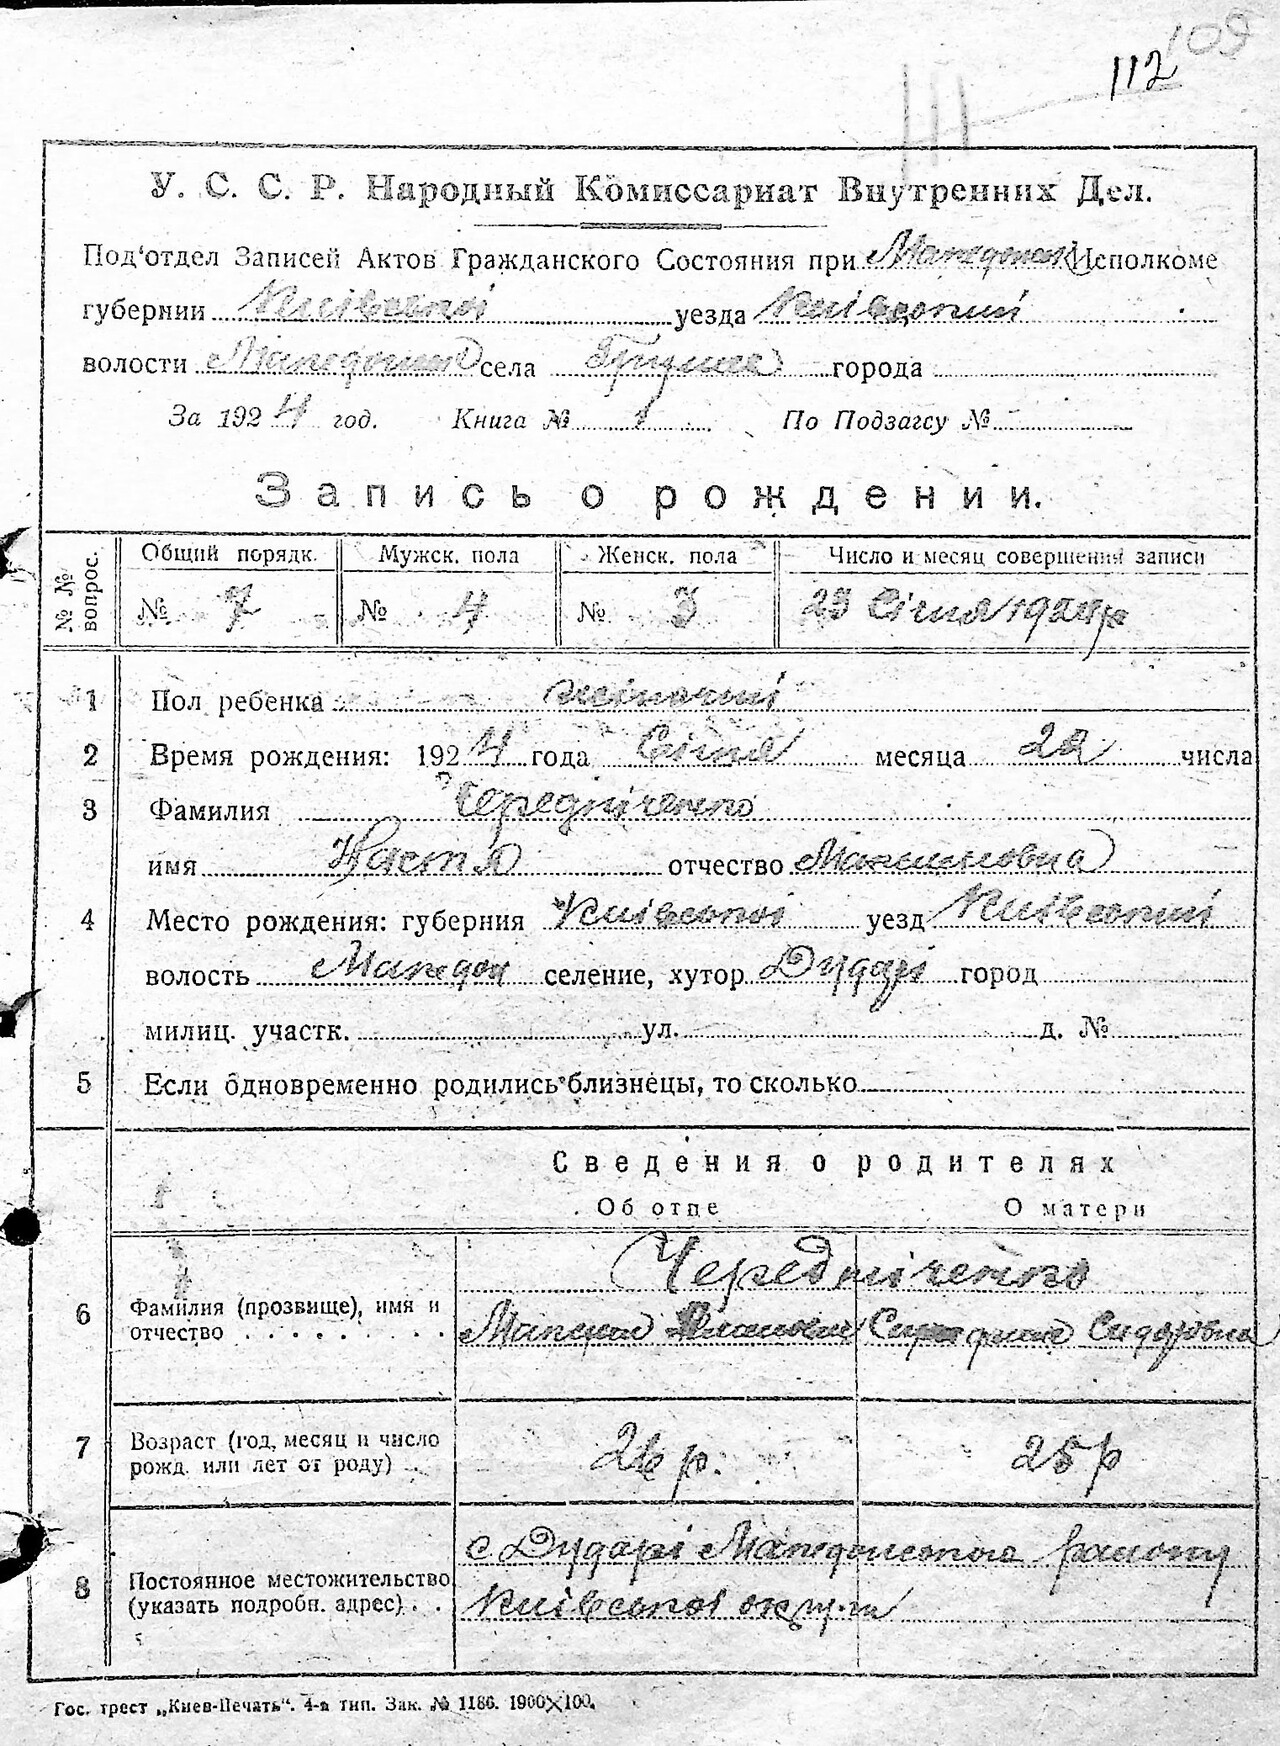 109
112
У. С. С. Р. Народный Комиссариат Внутренних Дел.
Под'отдел Записей Актов Гражданского Состояния при Македонск Исполкоме
губернии Київської уезда Київський
волости Македонск села города
За 1924 год. Книга № 1 По Подзагсу №
Запись о рождении.
№ № вопрос. Общий порядк. Мужск. пола Женск. пола Число и месяц совершения записи
№ 7 № 4 № 3 23 Січня 1924 р
1 Пол ребенка жіночий
2 Время рождения: 1924 года Січня месяца 22 числа
3 Фамилия Чередніченко
имя Настя отчество Максимовна
4 Место рождения: губерния Київської уезд Київський
волость Македон селение, хутор Дударі город
милиц. участк. ул. д. №
5 Если одновременно родились близнецы, то сколько
Сведения о родителях
Об отце О матери
Чередніченко
6 Фамилия (прозвище), имя и
отчество Сидоровна
7 Возраст (год, месяц и число
рожд. или лет от роду) 26 р. 25 р
с Дударі Македонського району
8 Постоянное местожительство
(указать подробн. адрес) Київської округи
Гос. трест „Киев-Печать“. 4-я тип. Зак. № 1186. 1900×100.